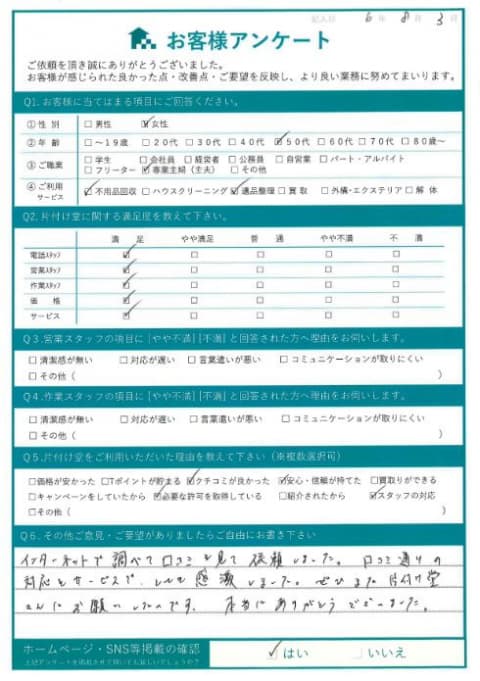 記入日 6年 8月 3日
お客様アンケート
ご依頼を頂き誠にありがとうございました。
お客様が感じられた良かった点・改善点・ご要望を反映し、より良い業務に努めてまいります。
Q1. お客様に当てはまる項目にご回答ください。
①性 別 □男性 ☑女性
②年 齢 □~19歳 □20代 □30代 □40代 ☑50代 □60代 □70代 □80歳~
③ご職業 □学生 □会社員 □経営者 □公務員 □自営業 □パート・アルバイト
□フリーター ☑専業主婦(主夫) □その他
④ご利用サービス ☑不用品回収 □ハウスクリーニング ☑遺品整理 □買取 □外構・エクステリア □解体
Q2. 片付け堂に関する満足度を教えて下さい。
満 足 やや満足 普 通 やや不満 不 満
電話スタッフ ☑ □ □ □ □
営業スタッフ ☑ □ □ □ □
作業スタッフ ☑ □ □ □ □
価 格 ☑ □ □ □ □
サービス ☑ □ □ □ □
Q3. 営業スタッフの項目に[やや不満][不満]と回答された方へ理由をお伺いします。
□清潔感が無い □対応が遅い □言葉遣いが悪い □コミュニケーションが取りにくい
□その他( )
Q4. 作業スタッフの項目に[やや不満][不満]と回答された方へ理由をお伺いします。
□清潔感が無い □対応が遅い □言葉遣いが悪い □コミュニケーションが取りにくい
□その他( )
Q5. 片付け堂をご利用いただいた理由を教えて下さい(※複数選択可)
□価格が安かった □Tポイントが貯まる ☑クチコミが良かった ☑安心・信頼が持てた □買取りができる
□キャンペーンをしていたから ☑必要な許可を取得している □紹介されたから ☑スタッフの対応
□その他( )
Q6. その他ご意見・ご要望がありましたらご自由にお書き下さい
インターネットで調べて口コミを見て依頼しました。口コミ通りの
対応とサービスで、とても感激しました。ぜひまた片付け堂
さんにお願いしたいです。本当にありがとうございました。
ホームページ・SNS等掲載の確認 ☑はい □いいえ
上記アンケートを掲載させて頂いてもよろしいでしょうか?